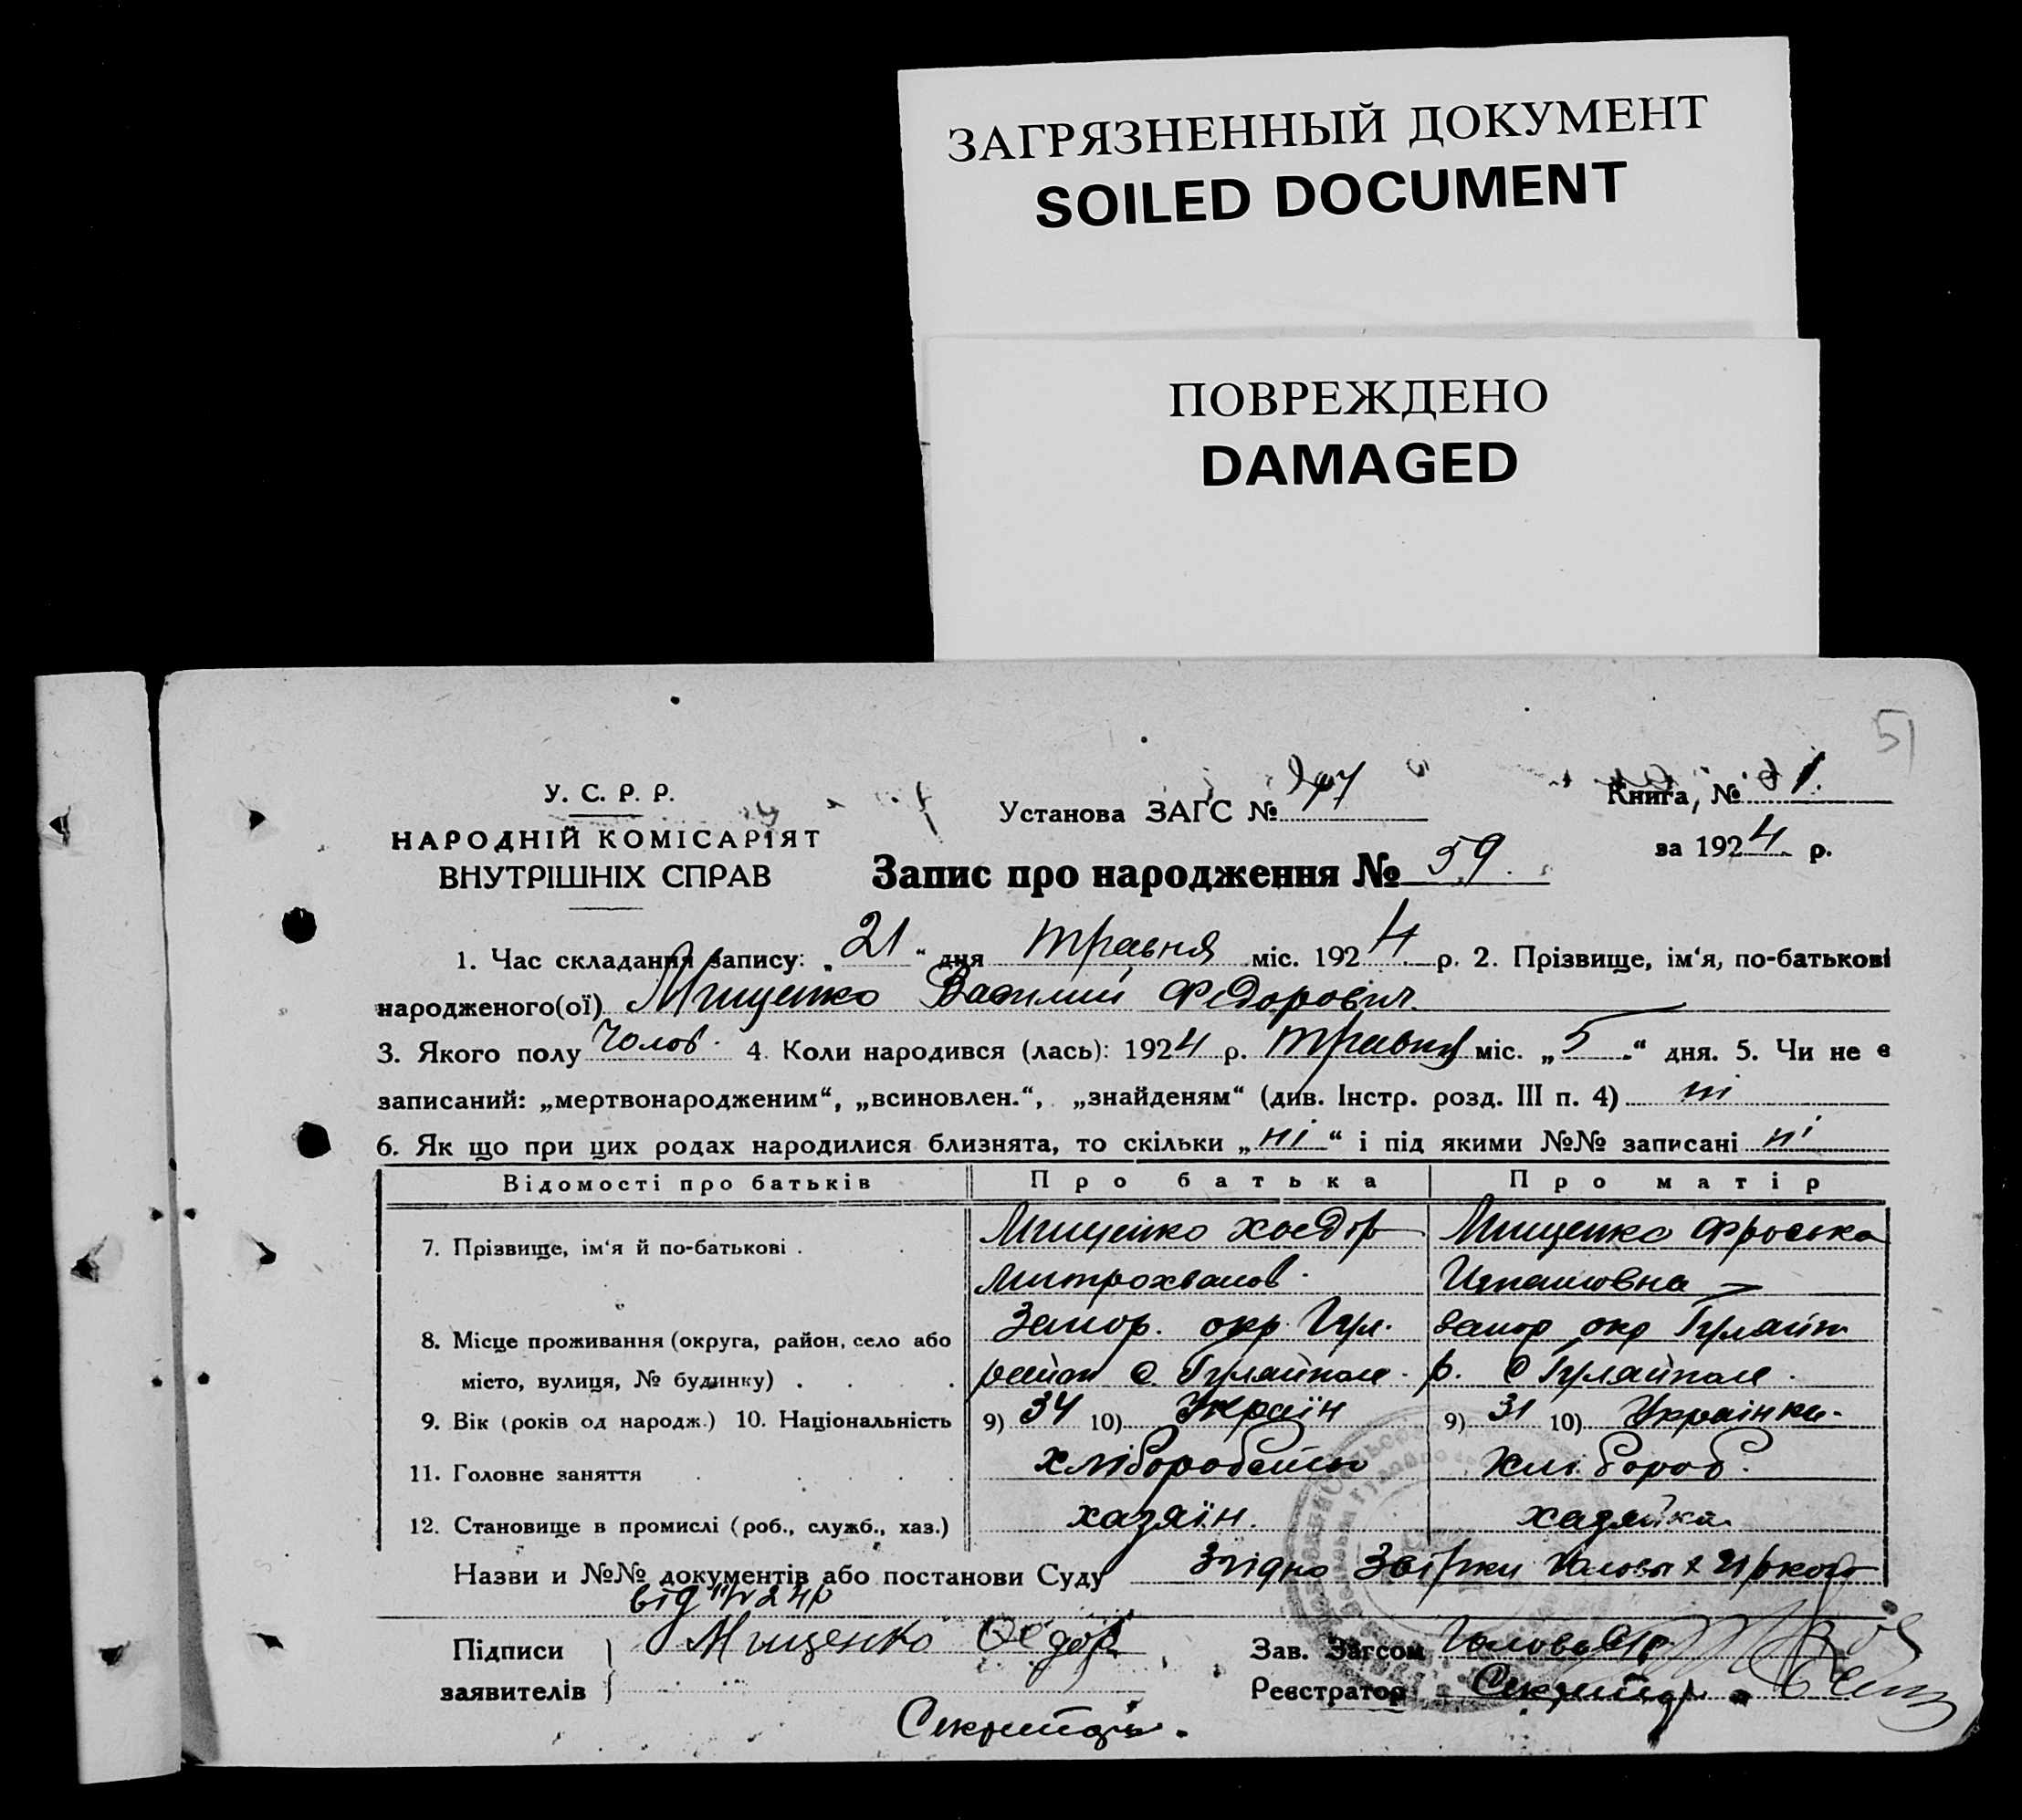 ЗАГРЯЗНЕННЫЙ ДОКУМЕНТ
SOILED DOCUMENT
ПОВРЕЖДЕНО
DAMAGED
51
У. С. Р. Р.
НАРОДНІЙ КОМІСАРІЯТ
ВНУТРІШНІХ СПРАВ
Установа ЗАГС №
Книга, № 1.
за 1924 р.
Запис про народження № 59.
1. Час складання запису: „21“ дня травня міс. 1924 р. 2. Прізвище, ім'я, по-батькові
народженого(ої) Мищенко Василий Федорович
3. Якого полу Чолов. 4. Коли народився (лась): 1924 р. травня міс. „5“ дня. 5. Чи не є
записаний: „мертвонародженим“, „всиновлен.“, „знайденям“ (див. Інстр. розд. III п. 4) ні
6. Як що при цих родах народилися близнята, то скільки „ні“ і під якими №№ записані ні
Відомості про батьків Про батька Про матір
7. Прізвище, ім'я й по-батькові . Мищенко Хведор Мищенко Фроська
Митрохванов.
8. Місце проживання (округа, район, село або Запор. окр. Гул. Запор окр Гуляйп
місто, вулиця, № будинку) район с. Гуляйполе. р. с Гуляйполе.
9. Вік (років од народж.) 10. Національність 9) 34 10) Україн 9) 31 10) Українка.
11. Головне заняття хлібороб хлібороб.
12. Становище в промислі (роб., служб., хаз.) хазяїн. хазяйка
Назви и №№ документів або постанови Суду Згідно
від
Підписи заявителів Мищенко Федор
Зав. Загсом Голова
Реєстратор Секретарь
Секретарь.